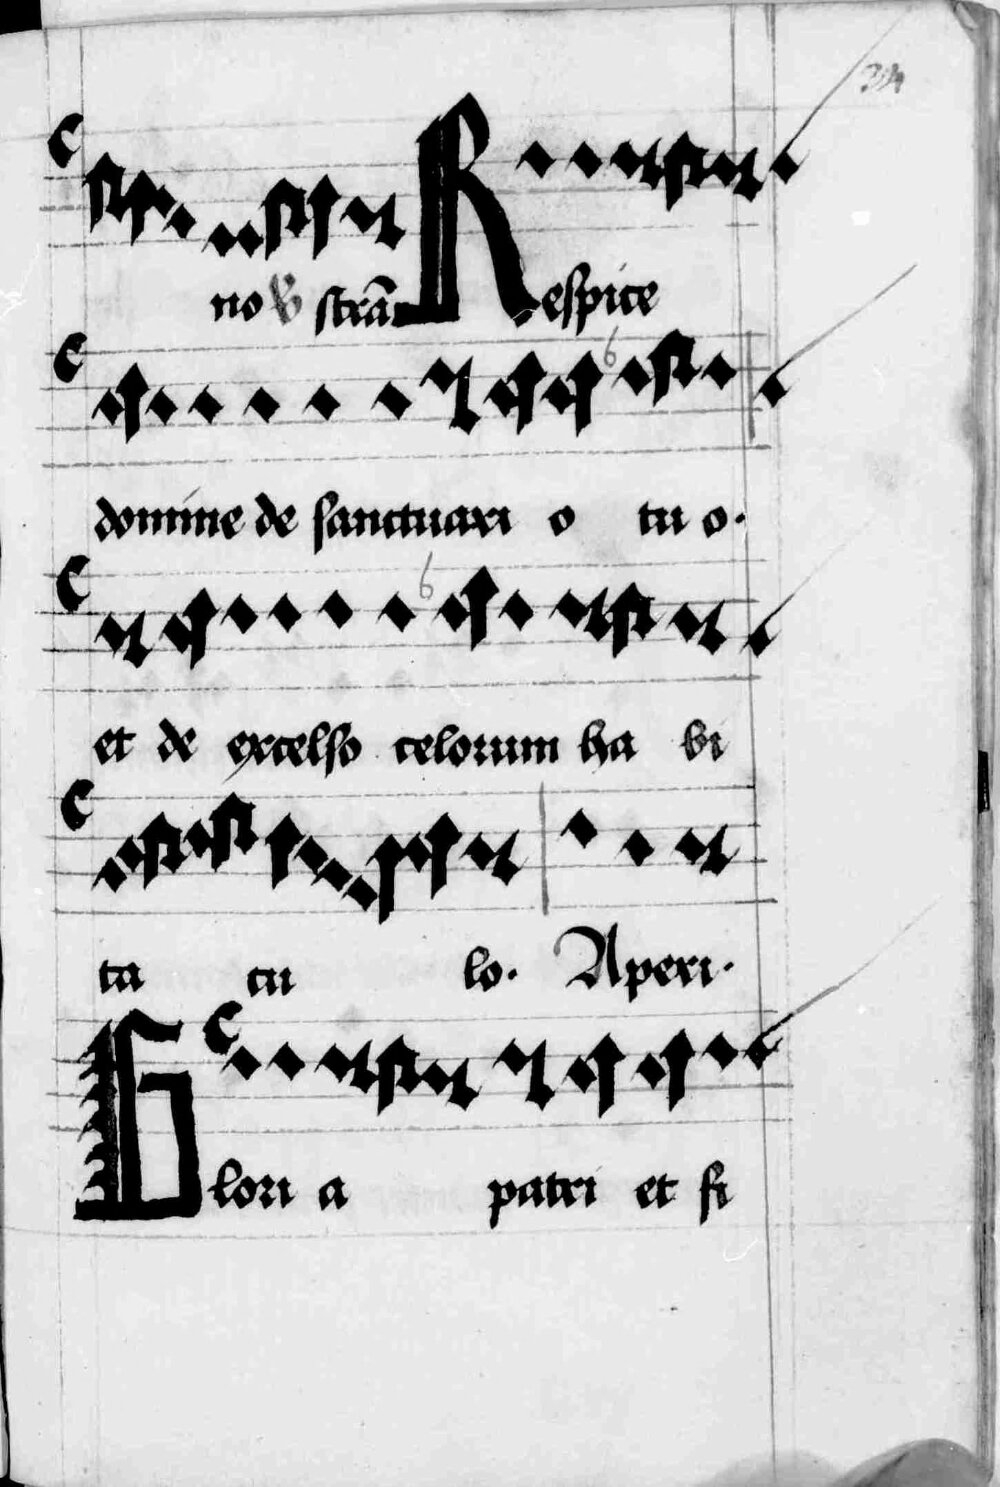 no strā Respice
domine de sanctuari o tu o.
et de excelso celorum ha bi
ta cu lo. Aperi.
Glori a patri et fi